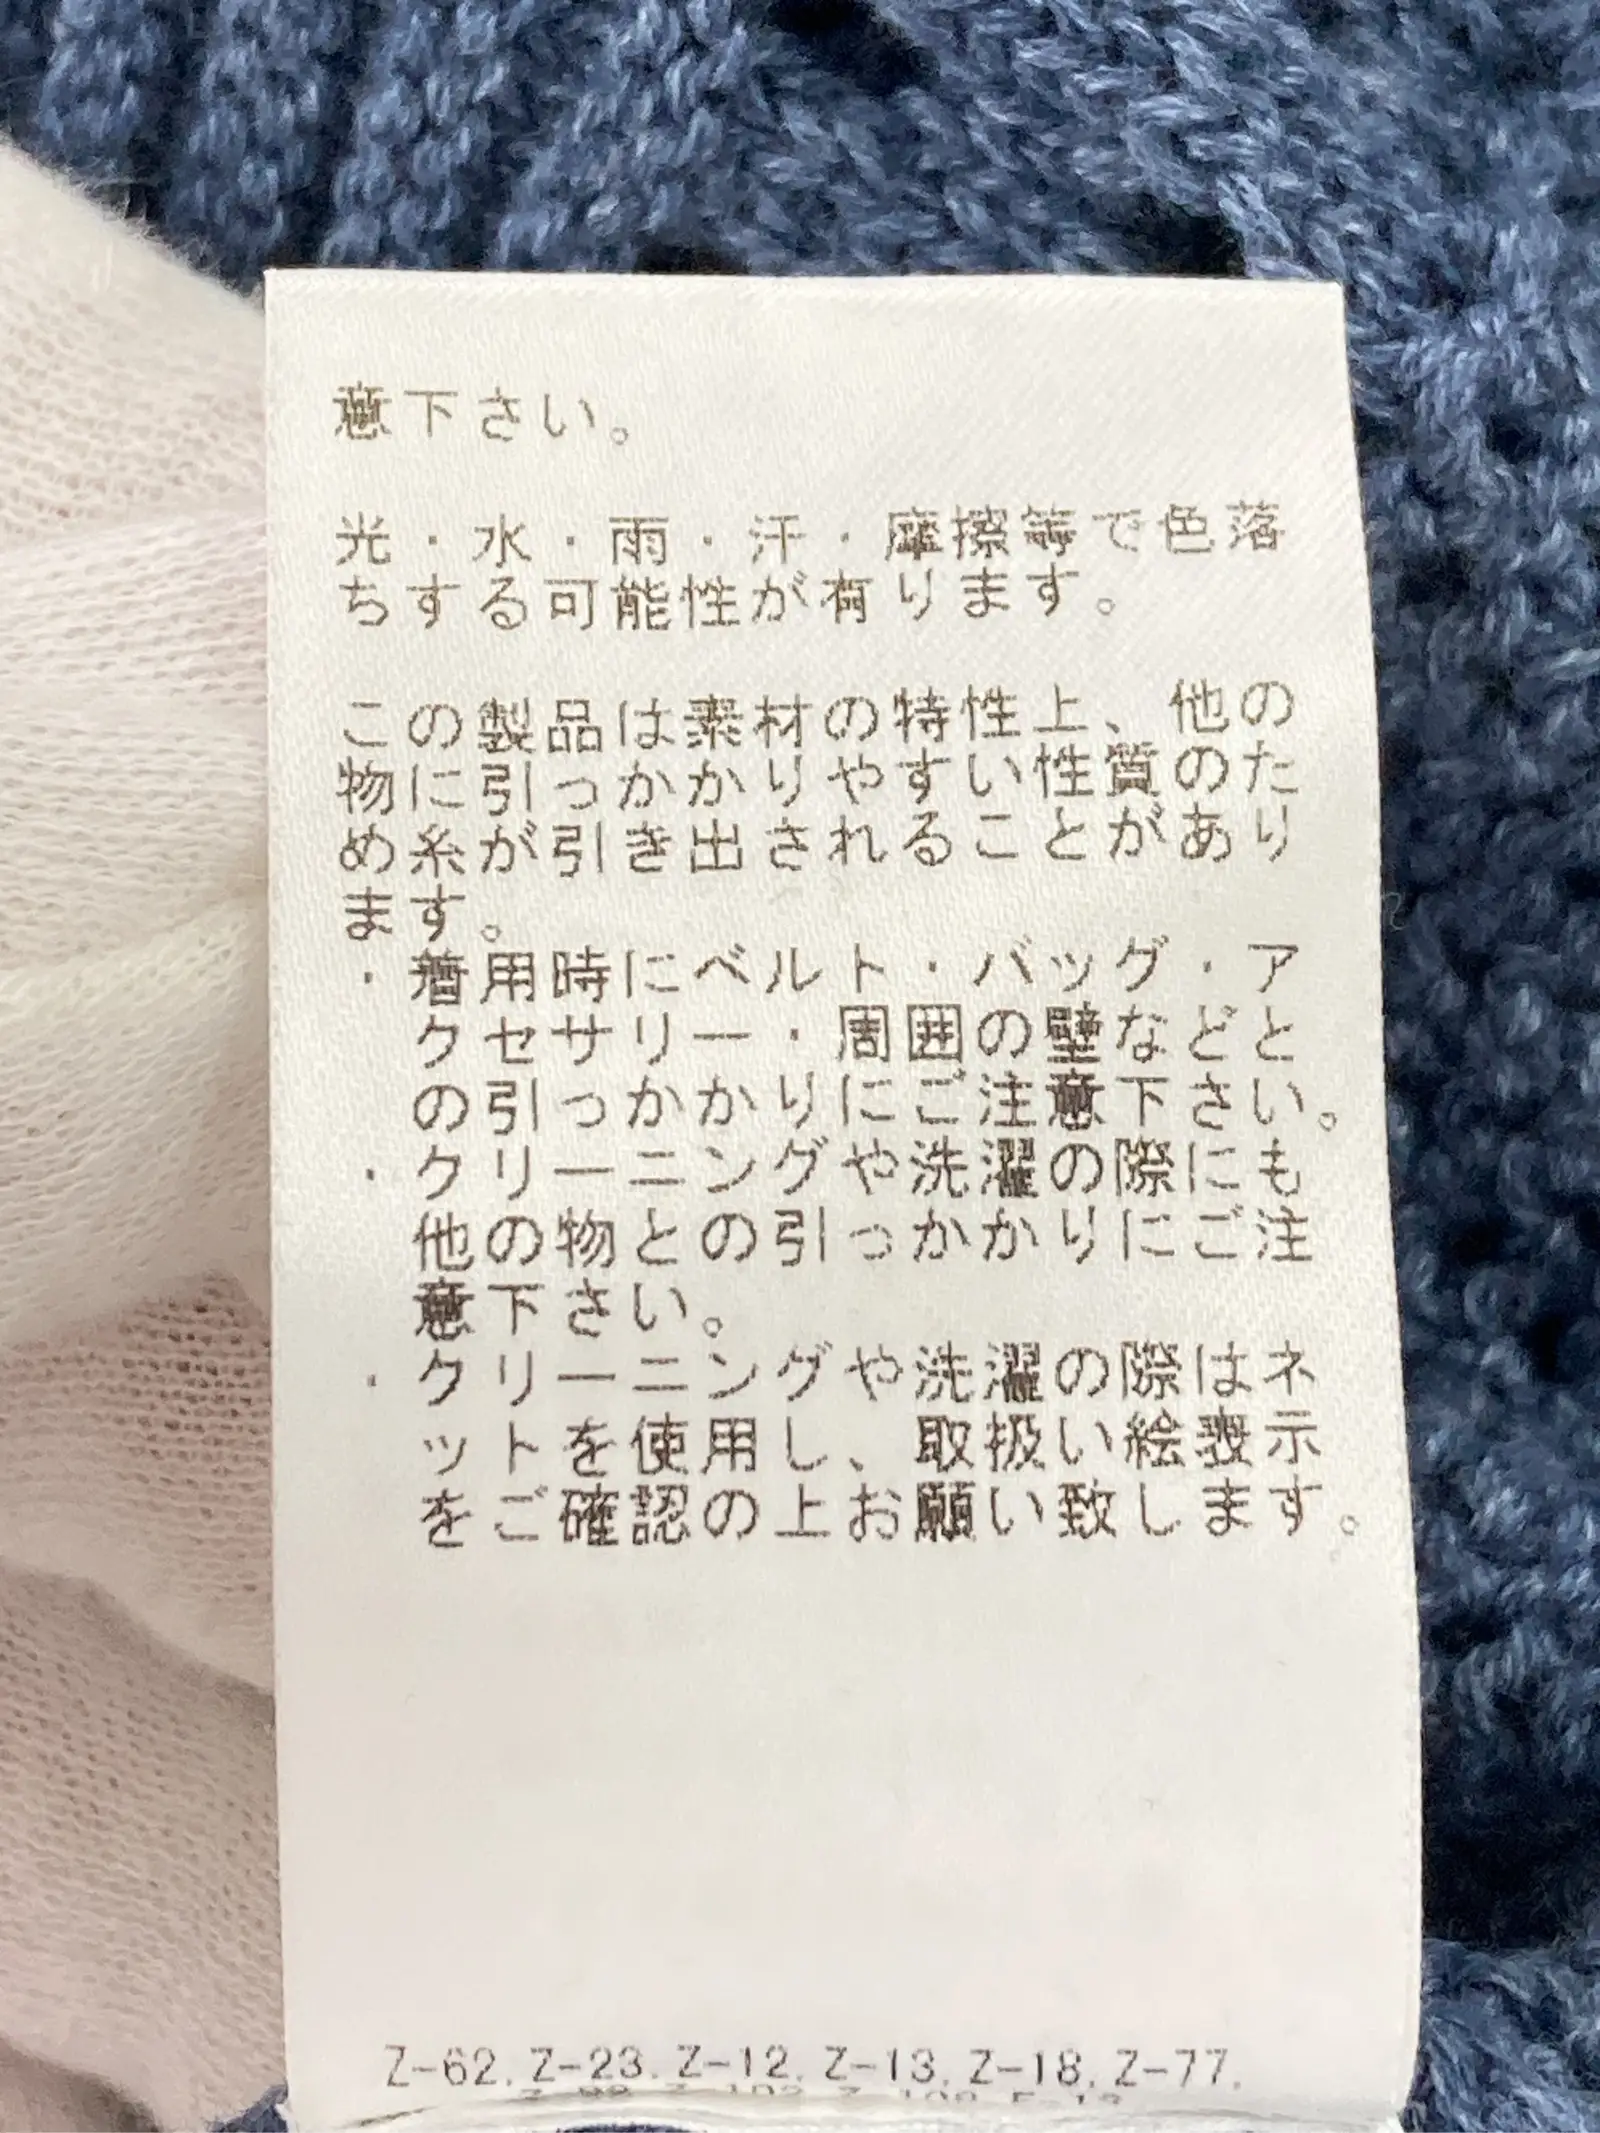 意下さい。
光・水・雨・汗・摩擦等で色落
ちする可能性が有ります。
この製品は素材の特性上、他の
物に引っかかりやすい性質のた
め糸が引き出されることがあり
ます。
・着用時にベルト・バッグ・ア
クセサリー・周囲の壁などと
の引っかかりにご注意下さい。
・クリーニングや洗濯の際にも
他の物との引っかかりにご注
意下さい。
・クリーニングや洗濯の際はネ
ットを使用し、取扱い絵表示
をご確認の上お願い致します。
Z-62. Z-23. Z-12. Z-13. Z-18. Z-77.